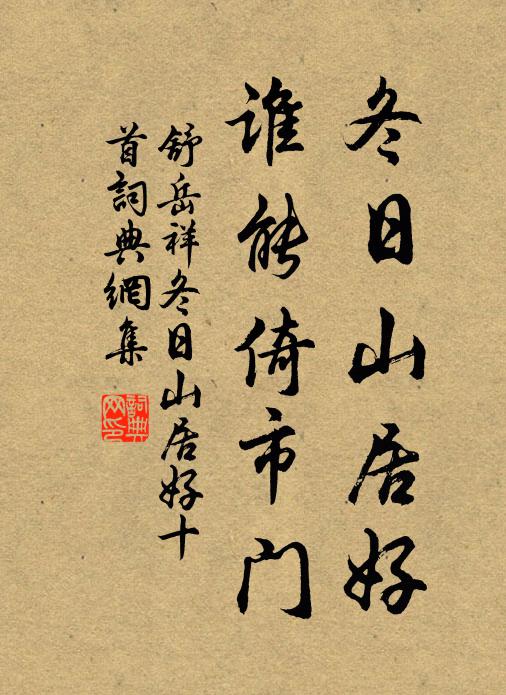 冬日山居好
谁能倚市门
舒岳祥冬日山居好十
首詞典網集
詞典网印